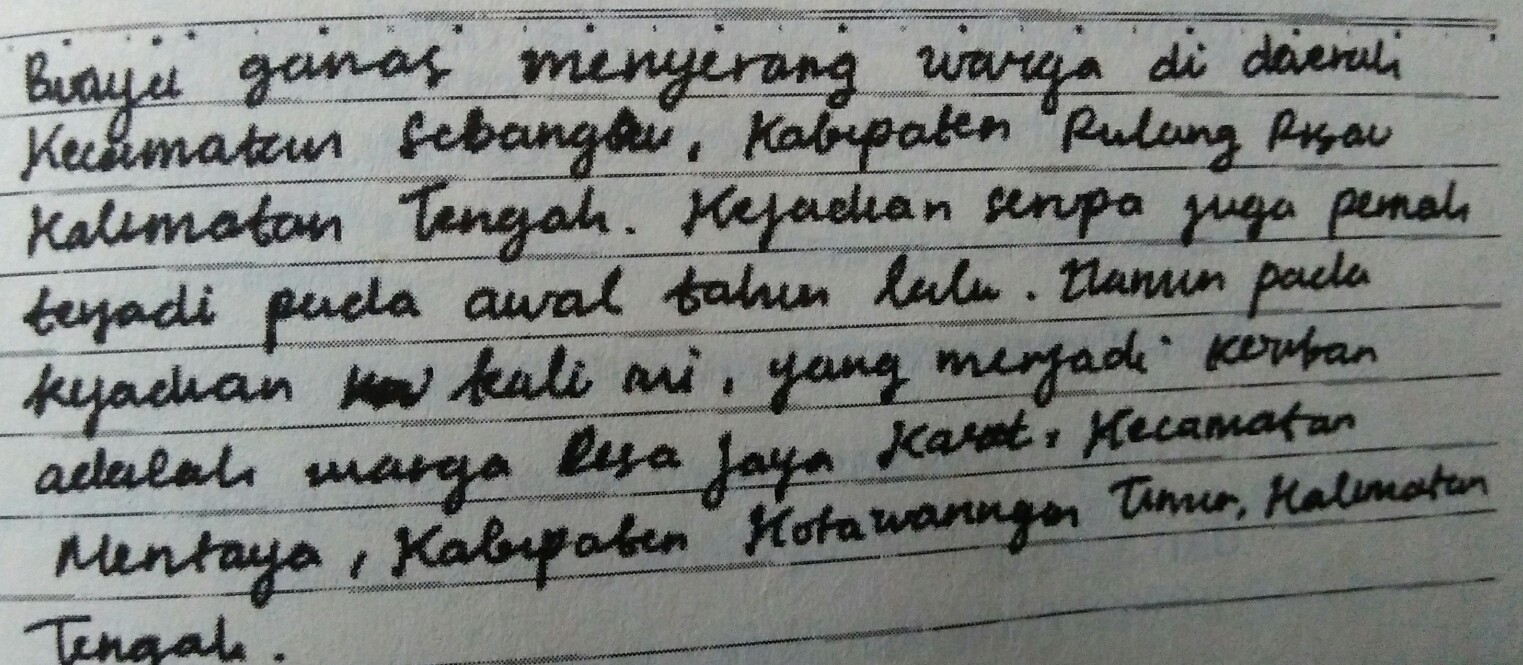 Buaya ganas menyerang warga di daerah
Kecamatan Sebangau, Kabupaten Pulang Pisau
Kalimatan Tengah. Kejadian serupa juga pernah
terjadi pada awal tahun lalu. Namun pada
kejadian kali ini, yang menjadi korban
adalah warga Desa Jaya Karet, Kecamatan
Mentaya, Kabupaten Kotawaringin Timur, Kalimatan
Tengah.